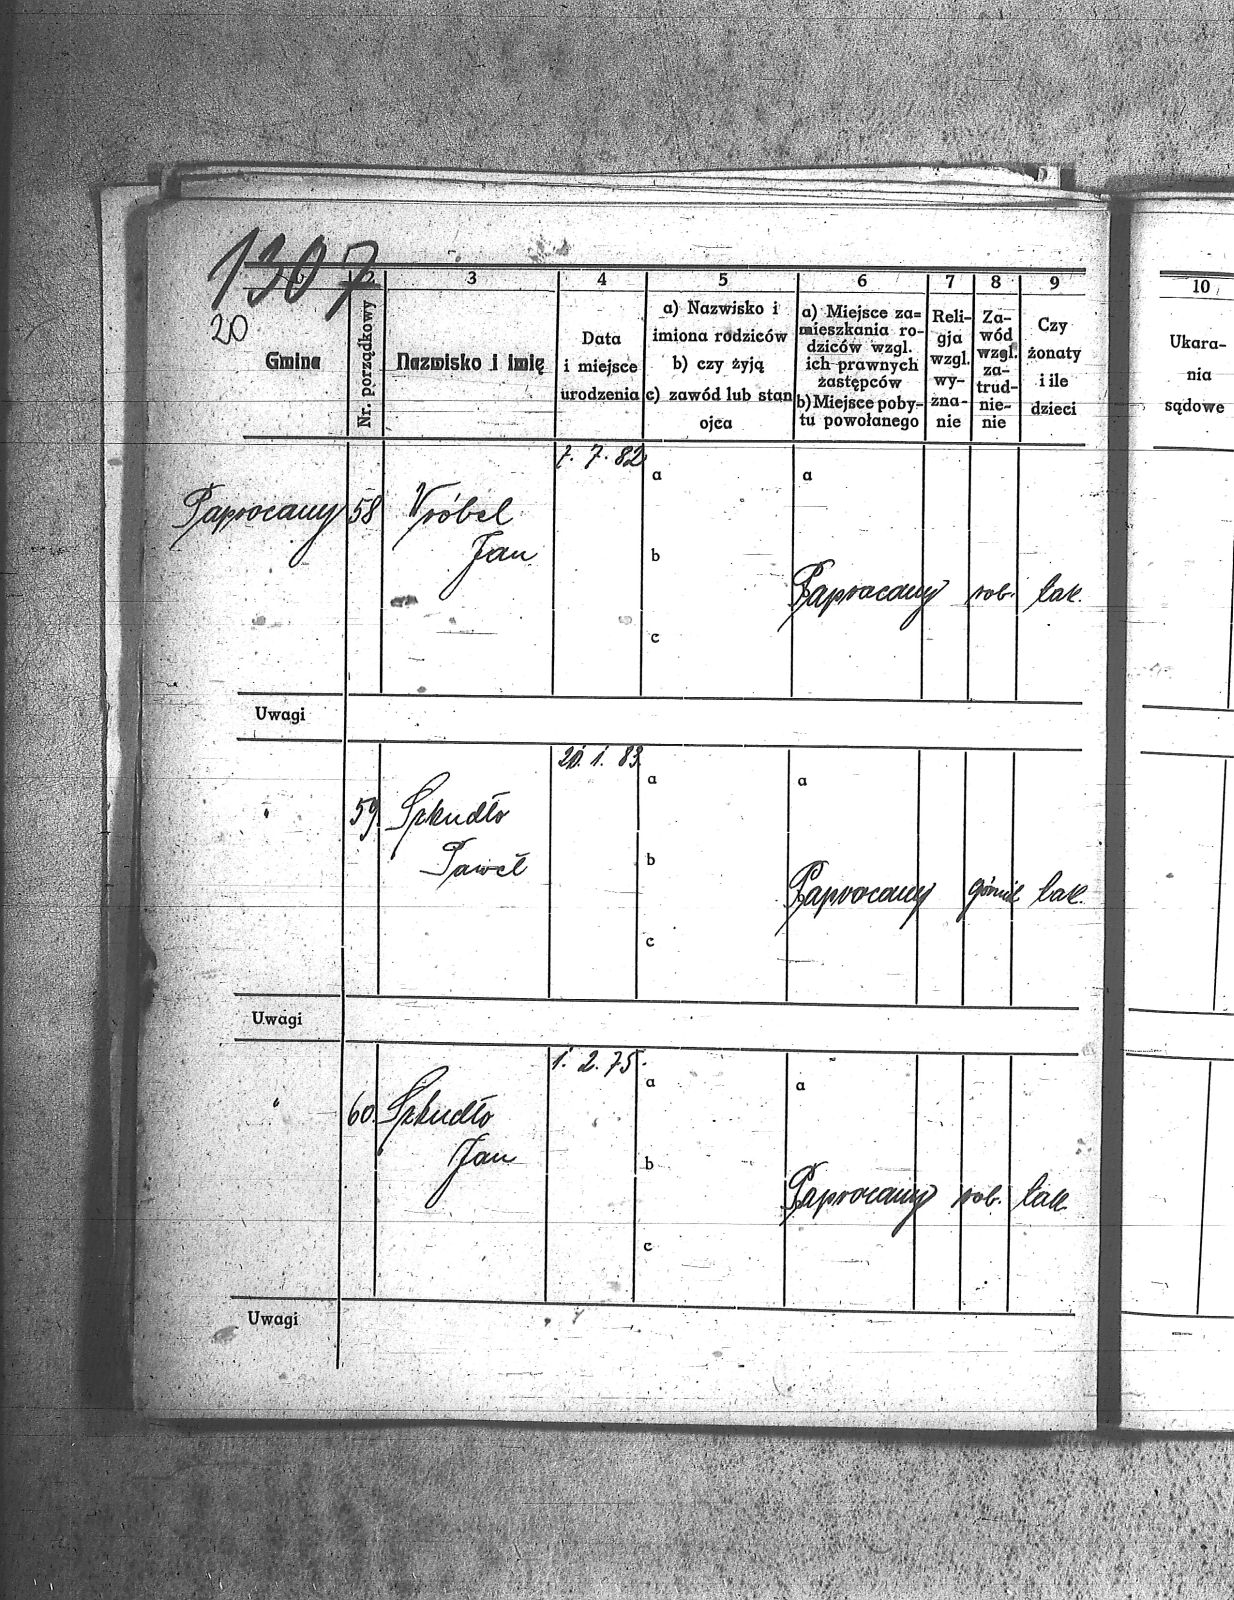 1307
20
1 2 3 4 5 6 7 8 9 10
Gmina
Nr. porządkowy
Nazwisko i imię
Data
i miejsce
urodzenia
a) Nazwisko i
imiona rodziców
b) czy żyją
c) zawód lub stan
ojca
a) Miejsce za=
mieszkania ro-
dziców wzgl.
ich prawnych
zastępców
b) Miejsce poby-
tu powołanego
Reli-
gja
wzgl.
wy-
zna-
nie
Za-
wód
wzgl.
za-
trud-
nie-
nie
Czy
żonaty
i ile
dzieci
Ukara-
nia
sądowe
7. 7. 82
a a
Paprocany 58 Wróbel
Jan
b
Paprocany rob. tak.
c
Uwagi
20. 1. 83.
a a
" 59 Szkudło
Paweł
b
Paprocany górnik tak.
c
Uwagi
1. 2. 75.
a a
" 60. Szkudło
Jan
b
Paprocany rob. tak.
c
Uwagi